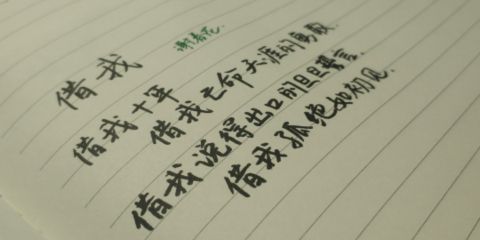 借我
谢春花
借我十年
借我亡命天涯的勇敢
借我说得出口的旦旦誓言
借我孤绝如初见